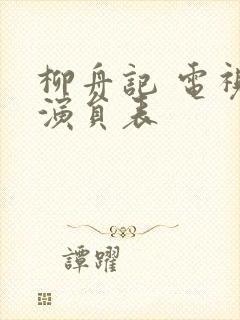 柳舟記 電視
演員表
譚躍